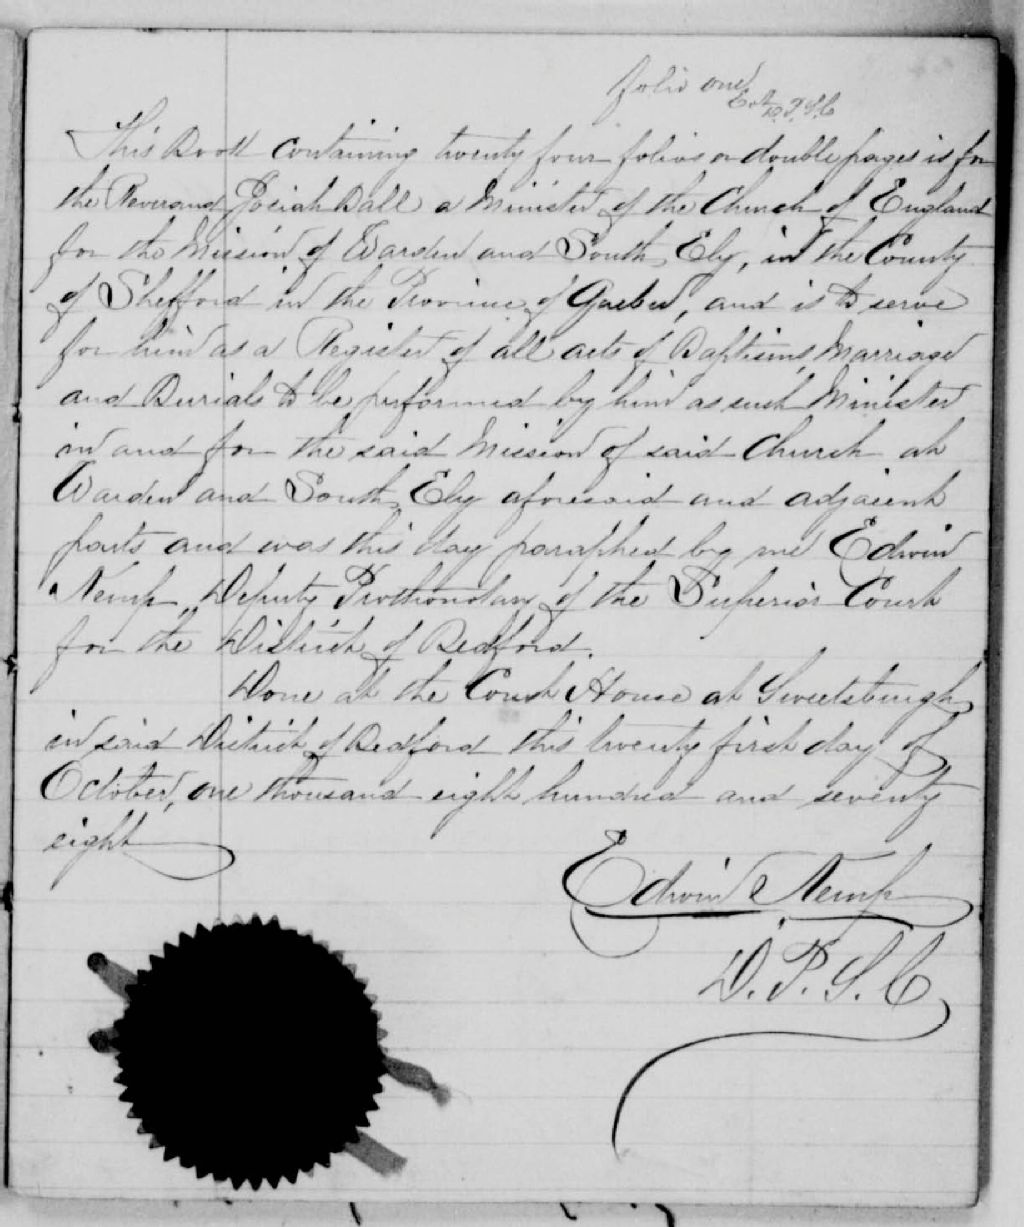 folio one
D.P.S.C
This Book containing twenty four folios or double pages is for
the Reverand Josiah Ball a Minister of the Church of England
for the Mission of Warden and South Ely, in the County
of Shefford in the Province of Quebec, and is to serve
for him as a Register of all acts of Baptisms, Marriage
and Burials to be performed by him as such Minister
in and for the said Mission of said Church at
Warden and South Ely aforesaid and adjacent
parts and was this day paraphed by me Edwin
Kemp, Deputy Prothonotary of the Superior Court
for the District of Bedford.
Done at the Court House at Sweetsburgh
in said District of Bedford this twenty first day of
October, one thousand eight hundred and seventy
eight
Edwin Kemp
D.P.S.C